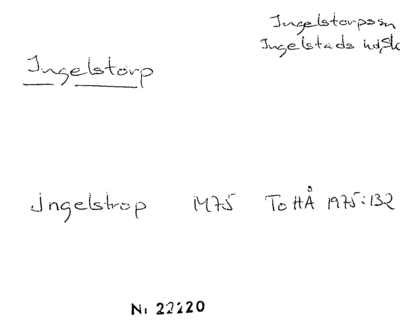 Ingelstorpssn
Ingelstads hd, Sk
Ingelstorp
Jngelstrop M75 ToHÅ 1975:132
Nr 22220